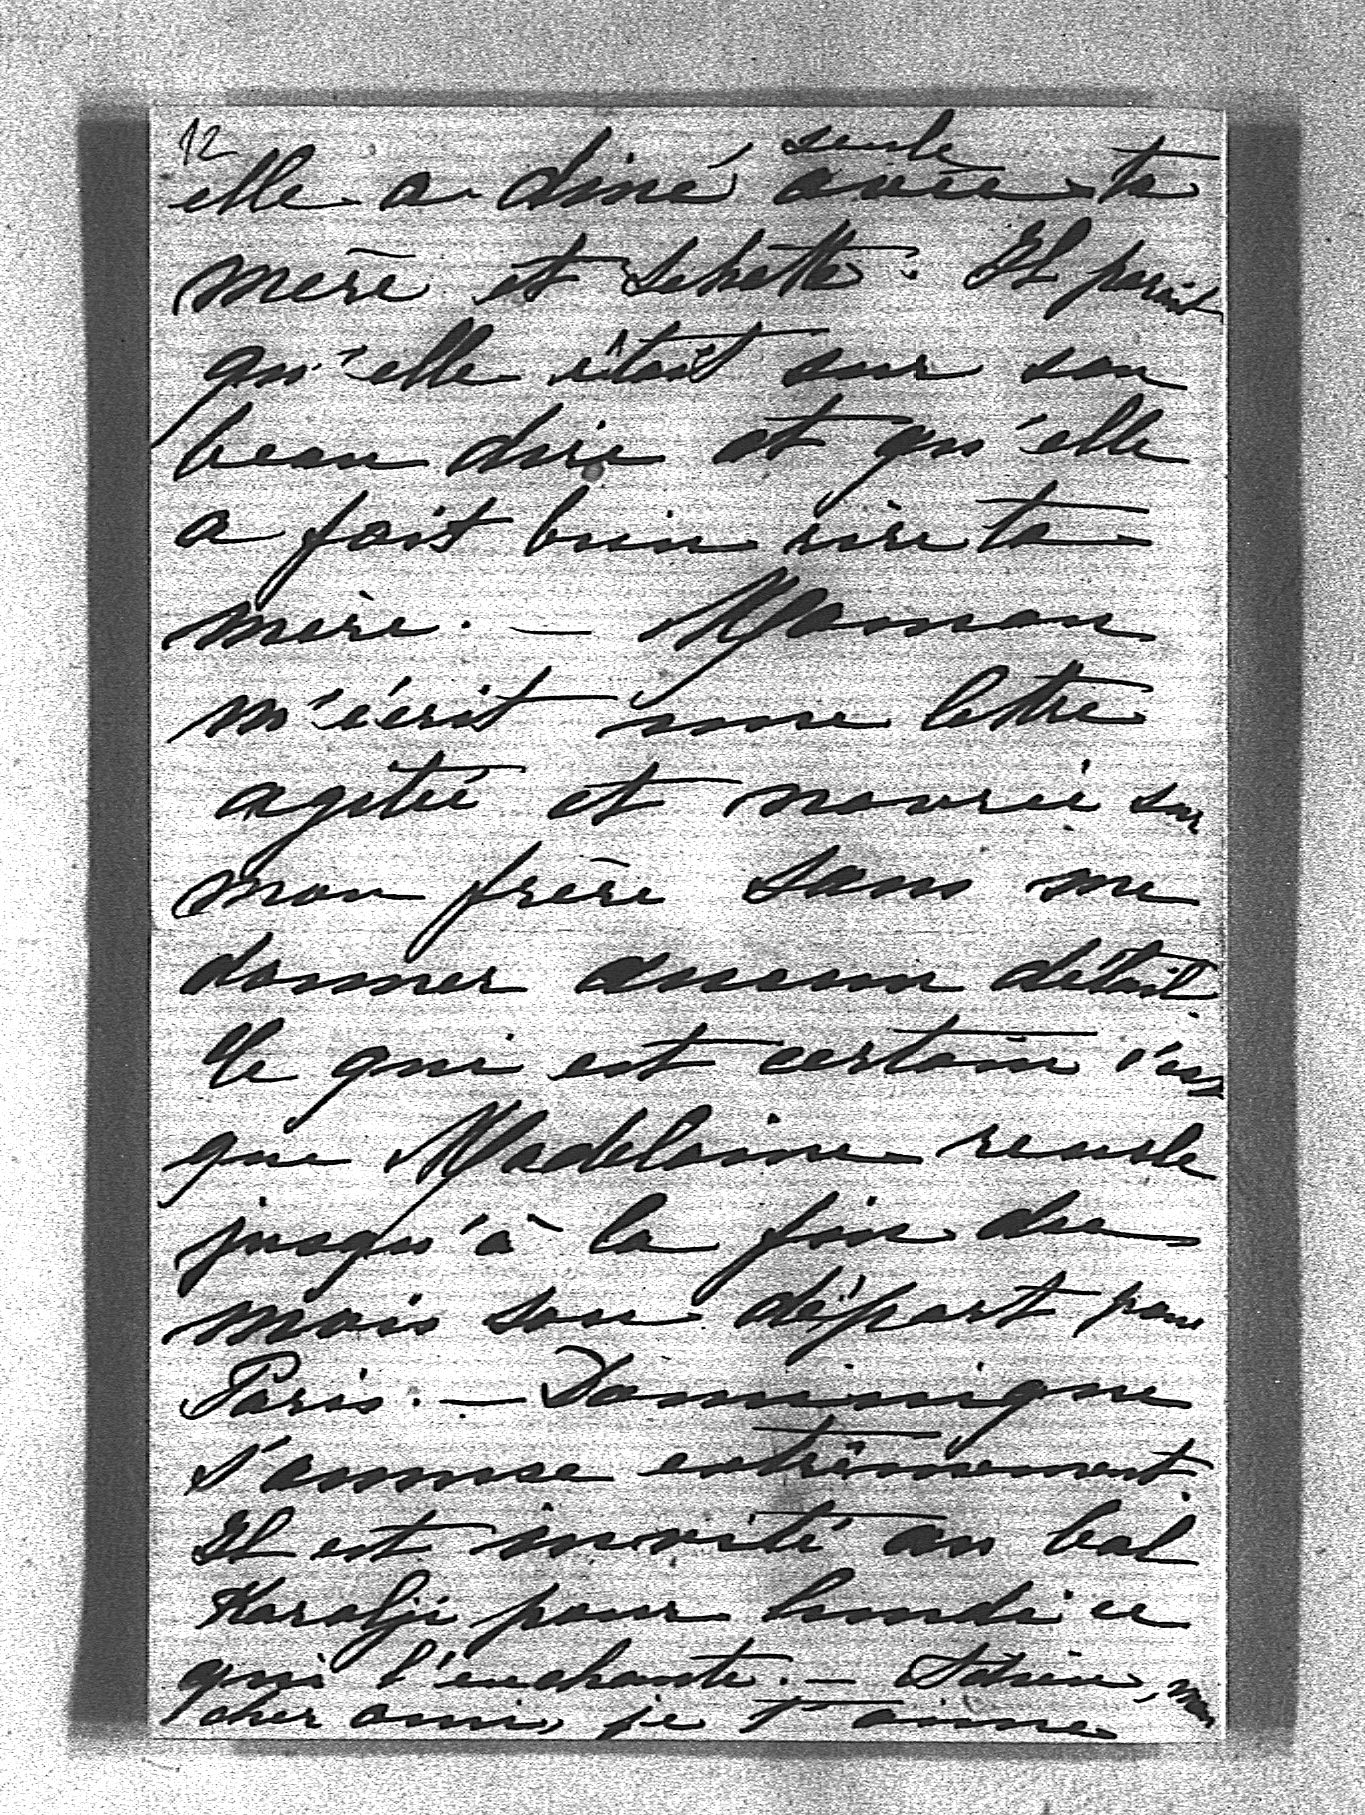 12
seule
elle a diné avec ta
mère et Schatta. Il parait
qu'elle était sur son
beau dire et qu'elle
a fait bien rire ta
mère. — Maman
m'écrit une lettre
agitée et navrée sur
mon frère sans me
donner aucun détail.
Ce qui est certain c'est
que Madelaine recule
jusqu'à la fin du
mois son départ pour
Paris. — Dominique
s'amuse extrêmement.
Il est invité au bal
Karolji pour lundi ce
qui l'enchante. — Adieu, mon
cher ami, je t'aime